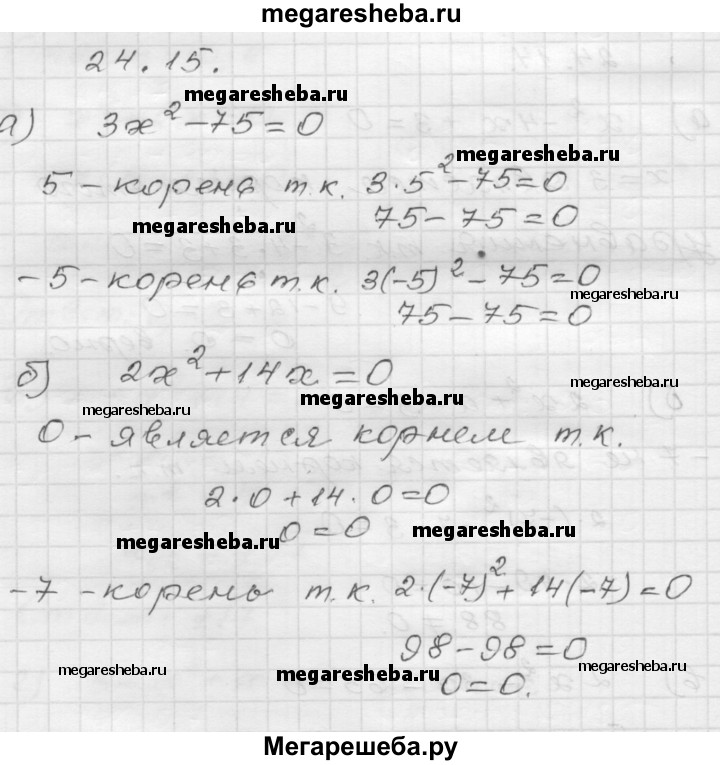 megaresheba.ru
24.15.
megaresheba.ru
а) 3x²-75=0
megaresheba.ru
5-корень т.к. 3·5²-75=0
megaresheba.ru
75-75=0
-5-корень т.к. 3(-5)²-75=0
megaresheba.ru
75-75=0
megaresheba.ru
б) 2x²+14x=0
megaresheba.ru
megaresheba.ru
megaresheba.ru
0-является корнем т.к.
2·0+14·0=0
0=0
megaresheba.ru
megaresheba.ru
-7-корень т.к. 2·(-7)²+14(-7)=0
98-98=0
megaresheba.ru
megaresheba.ru
megaresheba.ru
0=0.
Мегарешеба.ру